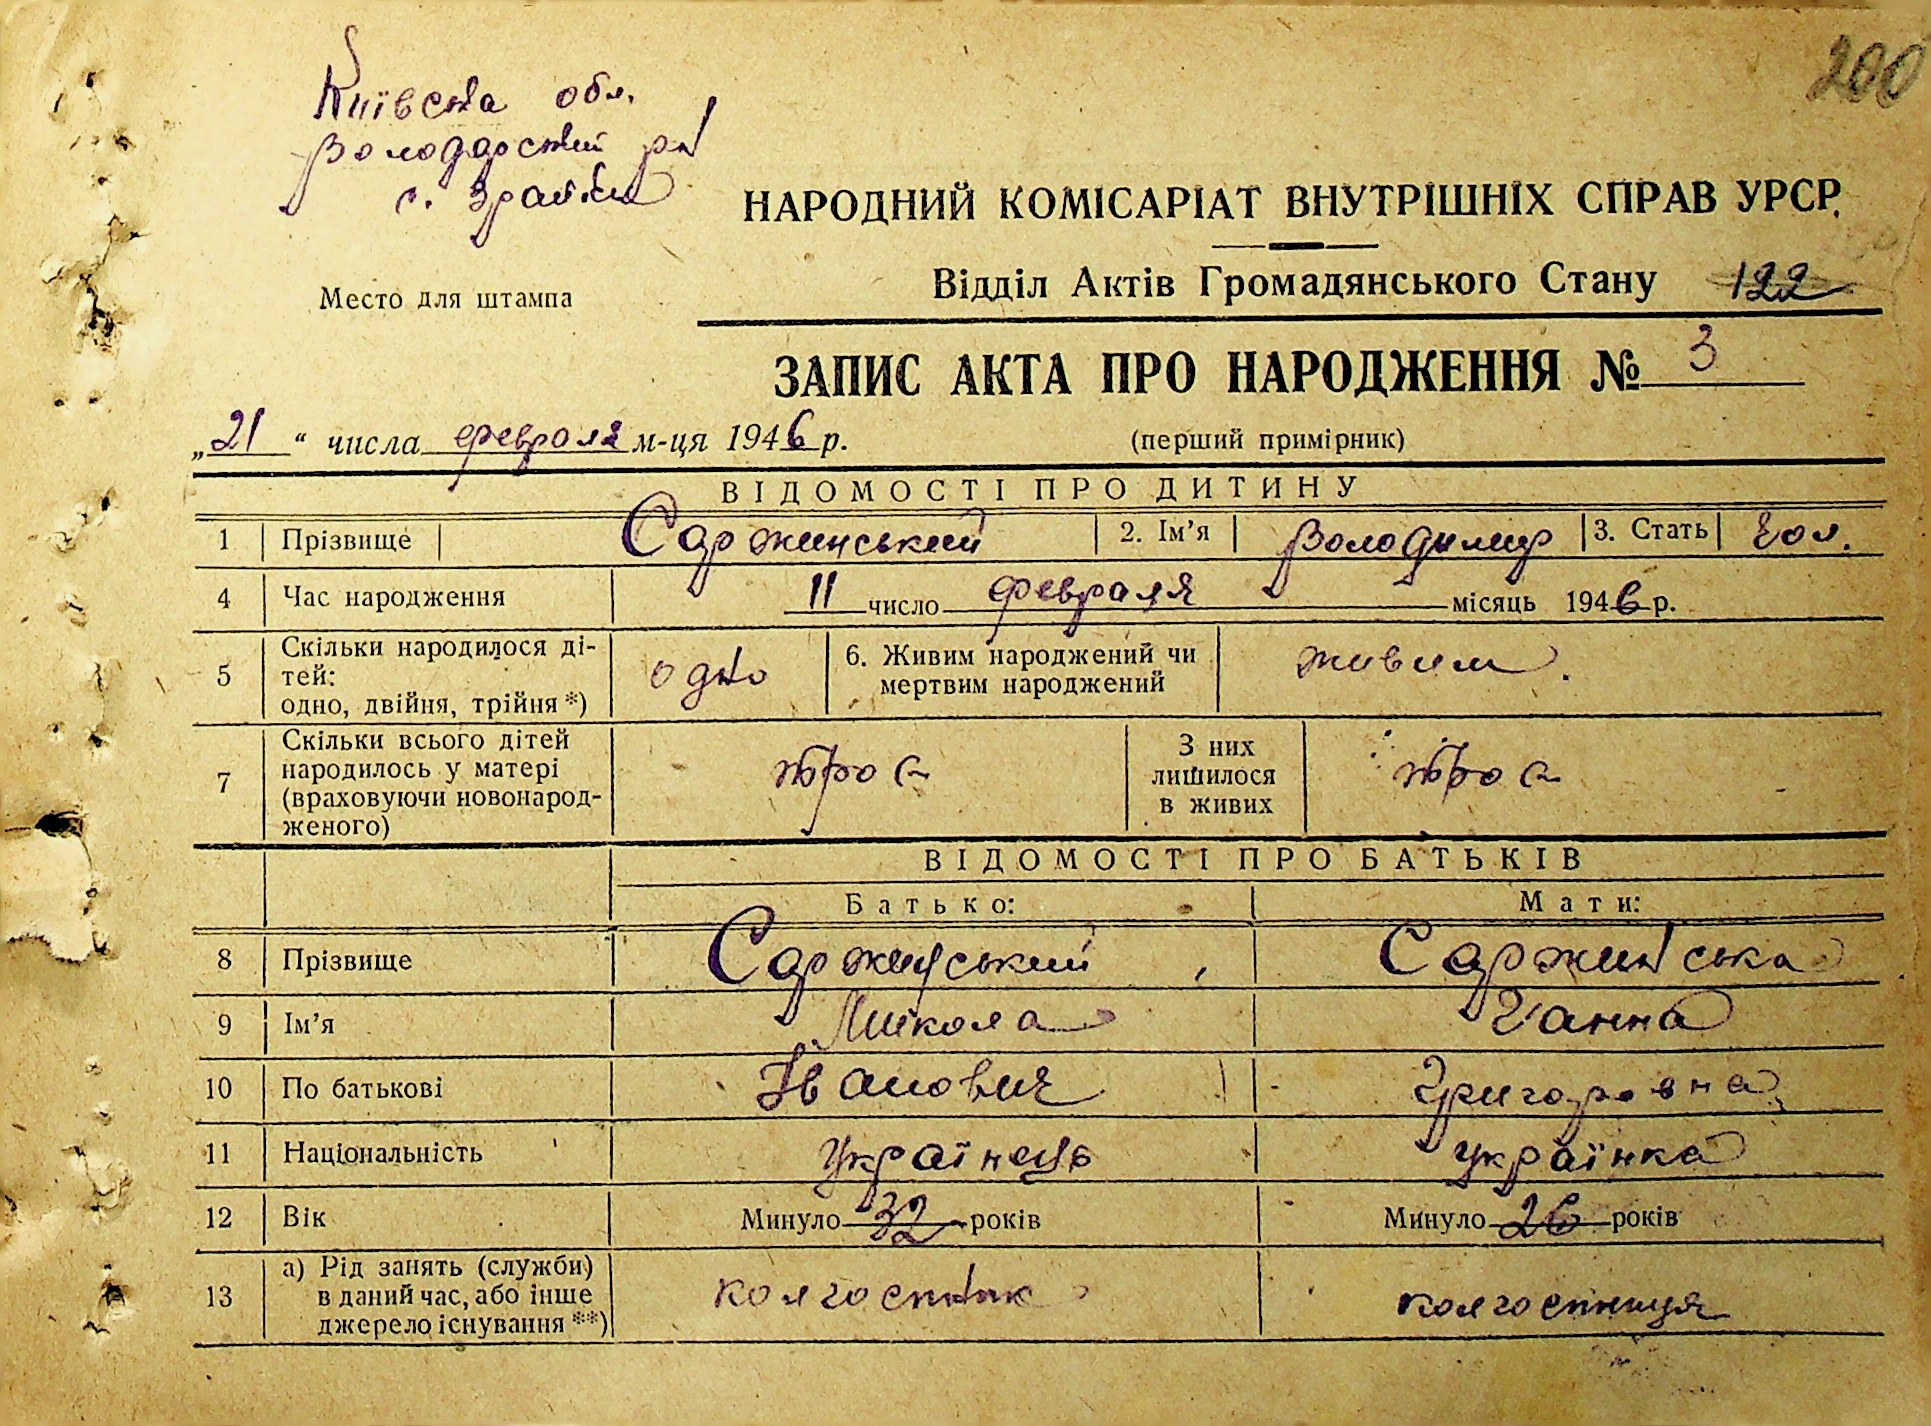 200
Київска обл.
Володарский р-н
с. Зрайки
НАРОДНИЙ КОМІСАРІАТ ВНУТРІШНІХ СПРАВ УРСР.
Место для штампа
Відділ Актів Громадянського Стану 122
ЗАПИС АКТА ПРО НАРОДЖЕННЯ № 3
„21“ числа февраля м-ця 1946 р. (перший примірник)
ВІДОМОСТІ ПРО ДИТИНУ
1 Прізвище Саржинський 2. Ім'я Володимир 3. Стать чол.
4 Час народження 11 число февраля місяць 1946 р.
5 Скільки народилося ді-
тей:
одно, двійня, трійня *) одно 6. Живим народжений чи
мертвим народжений живим.
7 Скільки всього дітей
народилось у матері
(враховуючи новонарод-
женого) троє З них
лишилося
в живих троє
ВІДОМОСТІ ПРО БАТЬКІВ
Батько: Мати:
8 Прізвище Саржинський Саржинська
9 Ім'я Микола Ганна
10 По батькові Іванович Григоровна
11 Національність Українець українка
12 Вік Минуло 32 років Минуло 26 років
13 а) Рід занять (служби)
в даний час, або інше
джерело існування **) колгоспник колгоспниця